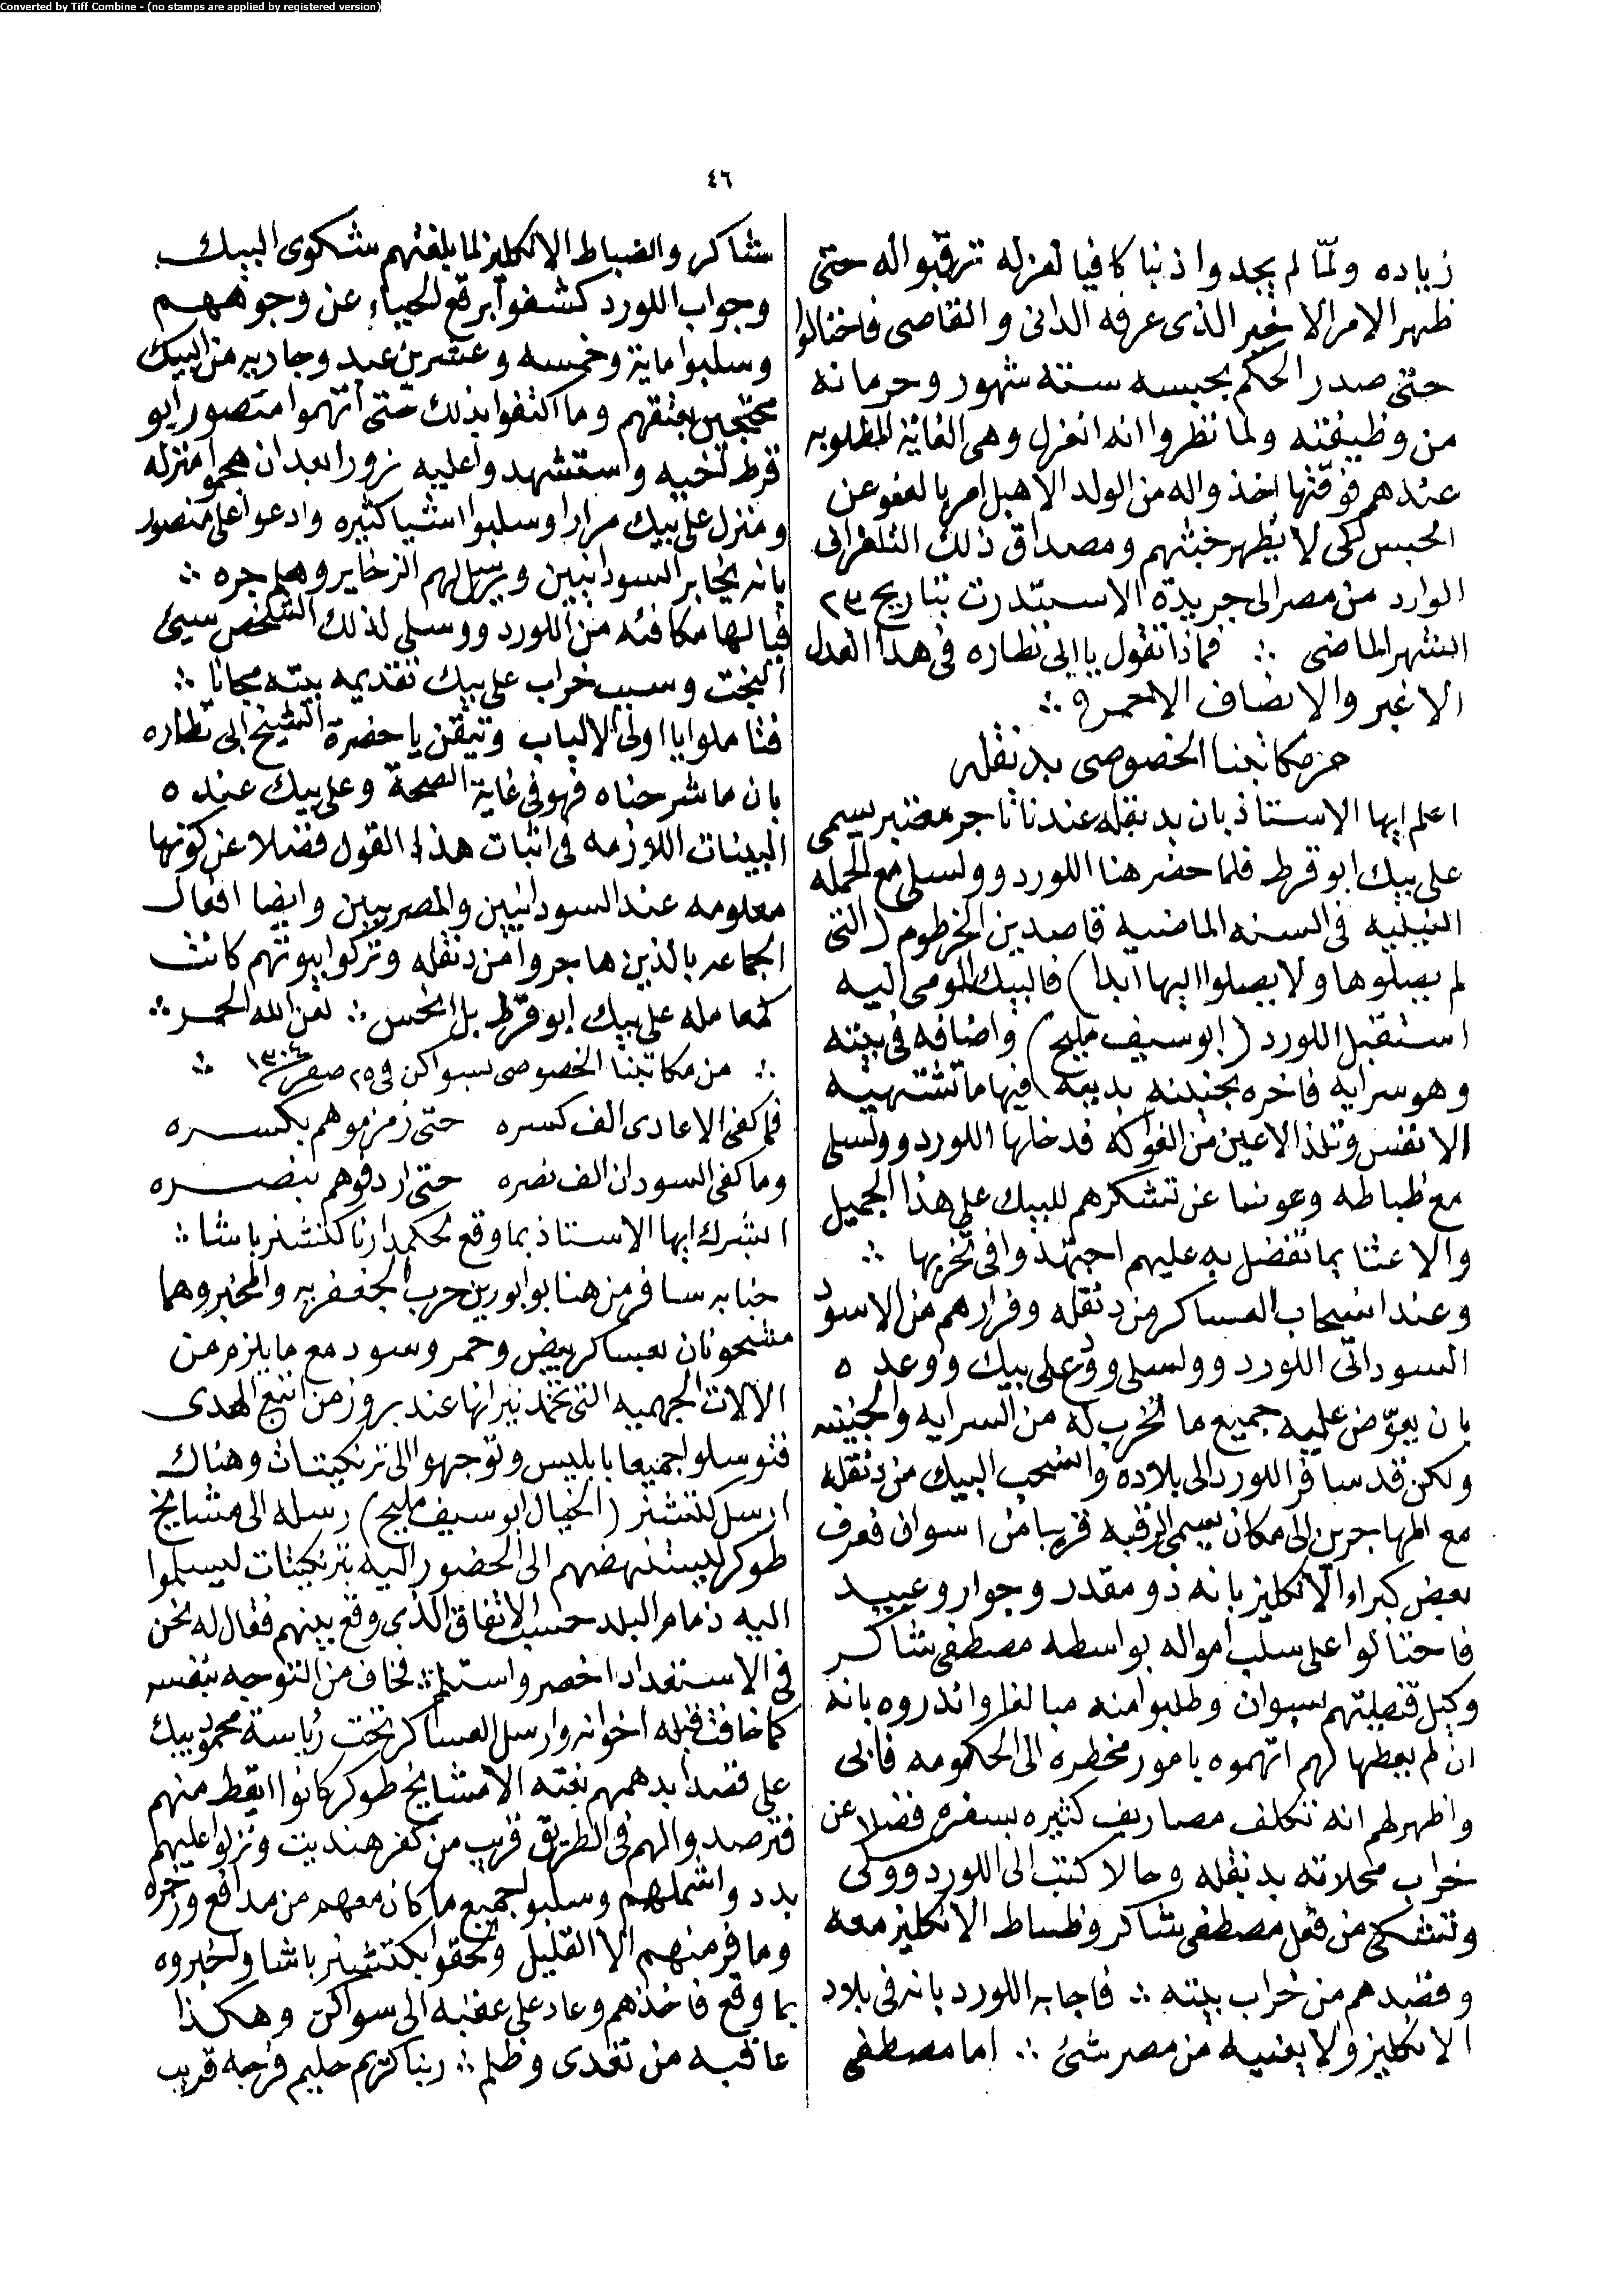 Converted by Tiff Combine - (no stamps are applied by registered version)
٤٦
زياده ولمّا لم يجدوا ذنبا كافيا لعزله ترقّبوا له حتى
ظهر الامر الاغبر الذى عرفه الدانى والقاصى فاحتالوا
حتى صدر الحكم بحبسه ستة شهور وحرمانه
من وظيفته ولما نظروا انه انعزل وهى الغاية المطلوبه
عندهم فوقتها اخذوا له من الولد الاهبل امر بالعفو عن
الحبس لكى لا يظهر خبثهم ومصداق ذلك التلغرافى
الوارد من مصر الى جريدة الاستندرت بتاريخ ٢٣
الشهر الماضى ∴ فماذا تقول يا ابى نظاره فى هذا العدل
الاغبر والانصاف الاحمر ∴
من مكاتبنا الخصوصى بدنقله
اعلم ايها الاستاذ بان بدنقله عندنا تاجر معتبر يسمى
على بيك ابو قرط فلما حضر هنا اللورد وولسلى مع الحمله
النيليه فى السنه الماضيه قاصدين الخرطوم (التى
لم يصلوها ولا يصلوا اليها ابدا) فالبيك المومى اليه
استقبل اللورد (ابو سيف مليح) واضافه فى بيته
وهو سرايه فاخره بجنينه بديعه فيها ما تشتهيه
الانفس وتلذ الاعين من الفواكه فدخلها اللورد وولسلى
مع ظباطه وعوضا عن تشكرهم للبيك على هذا الجميل
والاعتنا بما تفضل به عليهم اجتهدوا فى تخربها ∴
وعند انسحاب العساكر من دنقله وفرارهم من الاسود
السودانى اللورد وولسلى ودّع على بيك ووعده
بان يعوّض عليه جميع ما انخرب له من السرايه والجنينه
ولكن قد سافر اللورد الى بلاده وانسحب البيك من دنقله
مع المهاجرين الى مكان يسمى الرقبه قريبا من اسوان فعرف
بعض كبراء الانكليز بانه ذو مقدر وجوار وعبيد
فاحتالوا على سلب امواله بواسطه مصطفى شاكر
وكيل قنصليتهم بسوان وطلبوا منه مبالغا وانذروه بانه
ان لم يعطها لهم اتهموه بامور مخطره الى الحكومه فابى
واظهر لهم انه تكلف مصاريف كثيره بسفره فضلا عن
خراب محلاته بدنقله وحالا كتب الى اللورد ووكى
وتشكى من فعل مصطفى شاكر وظباط الانكليز معه
وقصدهم من خراب بيته ∴ فاجابه اللورد بانه فى بلاد
الانكليز ولا يعنيه من مصر شئ ∴ اما مصطفى
شاكر والضباط الانكليز لما بلغتهم شكوى البيك
وجواب اللورد كشفوا برقع الحياء عن وجوههم
وسلبوا ماية وخمسه وعشرين عبد وجاريه من البيك
محتجين بعتقهم وما اكتفوا بذلك حتى اتهموا منصور ابو
قرط لخيه واستشهدوا عليه زورا بعد ان هجموا منزله
ومنزل على بيك مرارا وسلبوا اشيا كثيره وادعوا على منصور
بانه يخابر السودانيين ويرسل لهم الزخاير وهلم جره ∴
فيا لها مكافئه من اللورد وولسلى لذلك الشخص سيئ
البخت وسبب خراب على بيك تقديمه بيته مجانا ∴
فتاملوا يا اولى الالباب وتيقن يا حضرة الشيخ ابى نظاره
بان ما شرحناه فهو فى غاية الصحة وعلى بيك عنده
البينات اللازمه فى اثبات هذا القول فضلا عن كونها
معلومه عند السودانيين والمصريين وايضا افعال
الجماعه بالذين هاجروا من دنقله وتركوا بيوتهم كانت
كمعامله على بيك ابو قرط بل انحس ∴ لعن الله الحمر ∴
∴ من مكاتبنا الخصوصى بسواكن فى ٢٥ صفر ١٣٠٤ ∴
فما كفى الاعادى الف كسره حتى زمزموهم بكسره
وما كفى السودان الف نصره حتى اردفوهم بنصره
ابشرك ايها الاستاذ بما وقع لحكمدارنا كتشنر باشا ∴
جنابه سافر من هنا بوابورين حرب الجعفريه والمخبر وهما
مشحونان بعساكر بيض وحمر وسود مع ما يلزم من
الالات الجهميه التى تخمد نيرانها عند بروز من اتبع المهدى
فتوسلوا جميعا بابليس وتوجهوا الى ترنكيتات وهناك
ارسل كتشنر (الخيال ابو سيف مليح) رسله الى مشايخ
طوكر ليستنهضهم الى الحضور اليه بترنكيتات ليسلموا
اليه زمام البلد حسب الاتفاق الذى وقع بينهم فقال له نحن
فى الاستعداد احضر واستلم ∴ فخاف من التوجه بنفسه
كما خافت قبله اخوانه وارسل العساكر تحت رئاسة محمود بيك
على قصد ايدهمهم بغته الا مشايخ طوكر كانوا ايقظ منهم
فترصدوا لهم فى الطريق قريب من كفر هنديت ونزلوا عليهم
بدد واشملهم وسلبوا جميع ما كان معهم من مدافع وزخره
وما فر منهم الا القليل ولحقوا بكتشنر باشا ولخبروه
بما وقع فاخذهم وعاد على عقبه الى سواكن وهكذا
عاقبه من تعدى وظلم ∴ ربنا كريم حليم فرجه قريب